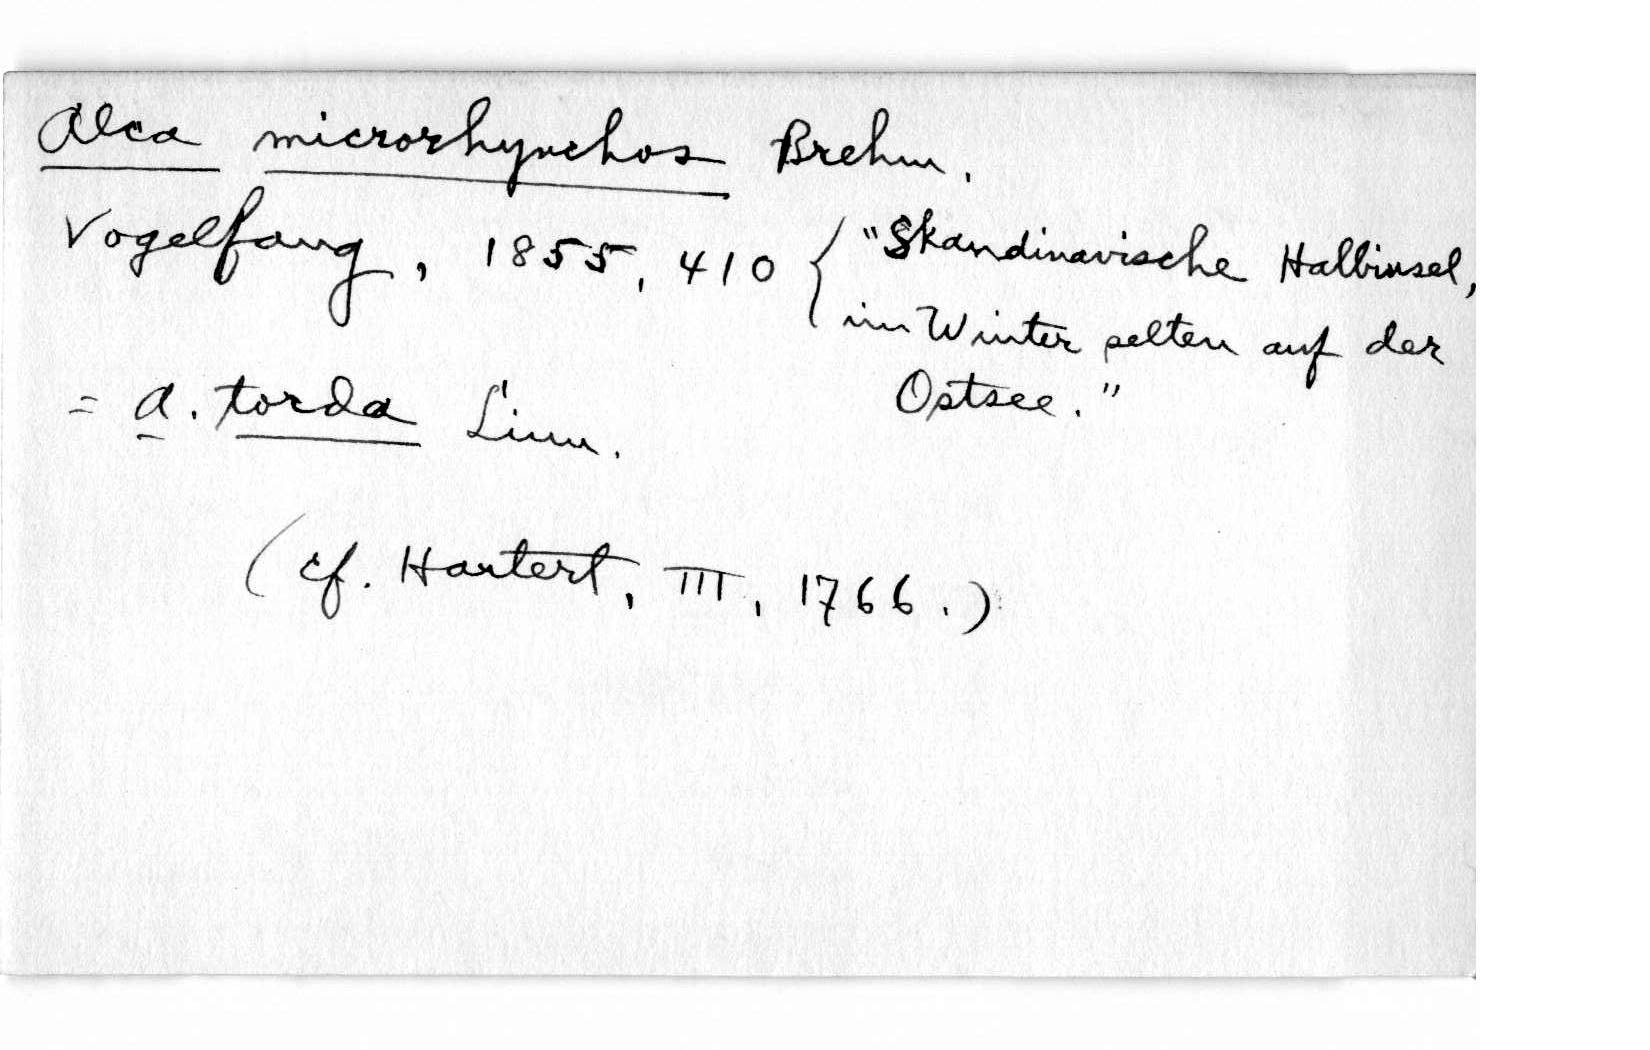 Alca microrhynchos Brehm.
Vogelfang, 1855, 410 { "Skandinavische Halbinsel,
im Winter selten auf der
Ostsee."
= A. torda Linn.
(cf. Hartert, III, 1766.)